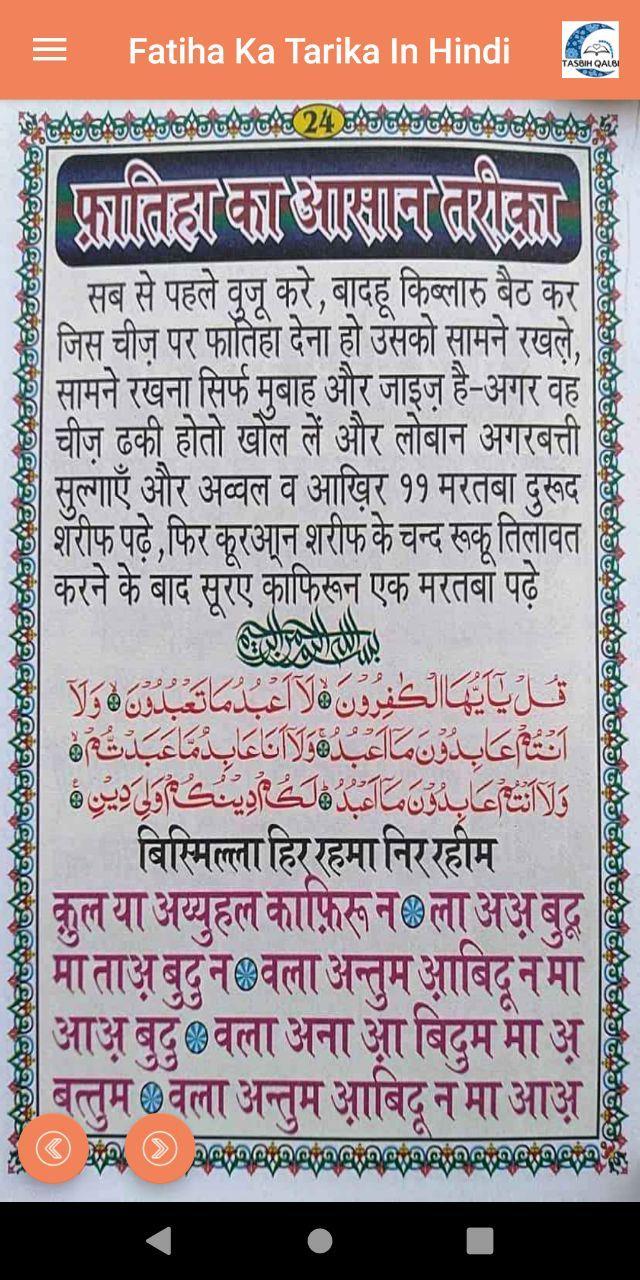 Fatiha Ka Tarika In Hindi
TASBIH QALBI
24
फ़ातिहा का आसान तरीक़ा
सब से पहले वुजू करे, बादहू किब्लारु बैठ कर
जिस चीज़ पर फातिहा देना हो उसको सामने रखले़,
सामने रखना सिर्फ मुबाह और जाइज़ है-अगर वह
चीज़ ढकी होतो खोल लें और लोबान अगरबत्ती
सुल्गाएँ और अव्वल व आख़िर ११ मरतबा दुरूद
शरीफ पढ़े, फिर कूरआ्न शरीफ के चन्द रूकू तिलावत
करने के बाद सूरए काफिरून एक मरतबा पढ़े
بسم الله الرحمن الرحيم
قُلْ يٰٓاَيُّهَا الْكٰفِرُوْنَ لَآ اَعْبُدُ مَا تَعْبُدُوْنَ وَلَآ
اَنْتُمْ عَابِدُوْنَ مَآ اَعْبُدُ وَلَآ اَنَا عَابِدٌ مَّا عَبَدْتُّمْ
وَلَآ اَنْتُمْ عَابِدُوْنَ مَآ اَعْبُدُ لَكُمْ دِيْنُكُمْ وَلِيَ دِيْنِ
बिस्मिल्ला हिर रहमा निर रहीम
क़ुल या अय्युहल काफ़िरू न ला अअ़ बुदू
मा ताअ़ बुदु न वला अन्तुम आ़बिदू न मा
आअ़ बुदु वला अना आ़ बिदुम मा अ़
बत्तुम वला अन्तुम आ़बिदू न मा आअ़